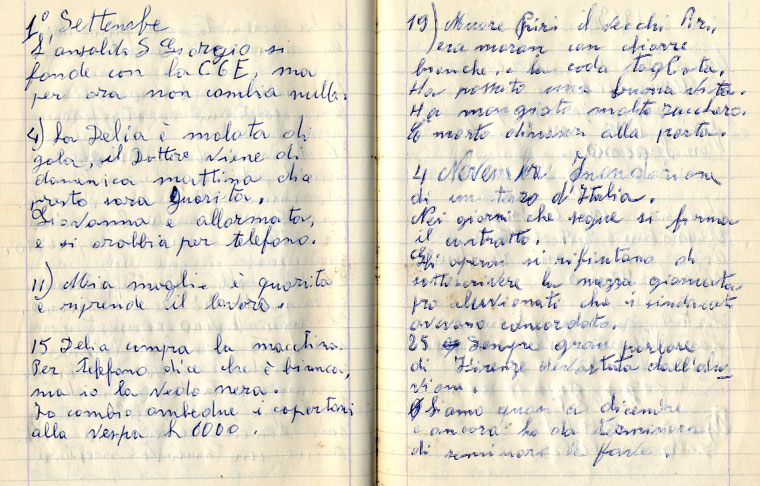 1º, Settembre
L'ansaldo S Giorgio si
fonde con la CGE, ma
per ora non cambia nulla.
4) La Delia è malata di
gola, il Dottore viene di
domenica mattina dice
presto sara guarita.
Giovanna è allarmata,
e si arabbia per telefono.
11) Mia moglie è guarita
e riprende il lavoro.
15 Delia compra la macchina.
Per telefono dice che è bianca,
ma io la vedo nera.
Io cambio ambedue i copertoni
alla vespa £ 6000.
19) Muore Piri il vecchi Piri,
era maron con chiazze
bianche, e la coda tagliata.
Ha passato una buona vita.
Ha mangiato molto zucchero.
È morto dinnanzi alla porta.
4 Novembre Inondazione
di un terzo d'Italia.
Nei giorni che segue si firma
il contratto.
Gli operai si rifiutano di
sottoscrivere la mezza giornata
pro aluvionati che i sindacati
avevano concordato.
25 Sempre gran parlare
di Firenze devastata dall'alu-
vione.
Siamo quasi a dicembre
e ancora ho da terminare
di seminare le fave.